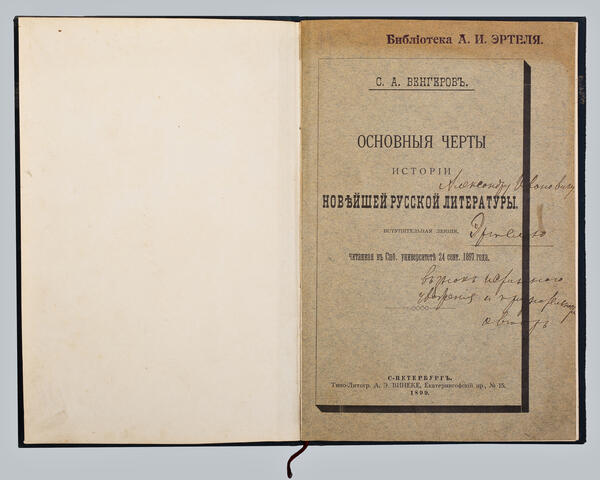 Библіотека А. И. ЭРТЕЛЯ.
С. А. ВЕНГЕРОВЪ.
ОСНОВНЫЯ ЧЕРТЫ
ИСТОРІИ
НОВѢЙШЕЙ РУССКОЙ ЛИТЕРАТУРЫ.
ВСТУПИТЕЛЬНАЯ ЛЕКЦІЯ,
читанная въ Спб. университетѣ 24 сент. 1897 года.
Александру Ивановичу
Эртелю
въ знакъ искренняго
уваженія и
авторъ
С-ПЕТЕРБУРГЪ.
Типо-Литогр. А. Э. ВИНЕКЕ, Екатерингофскій пр., № 15.
1899.